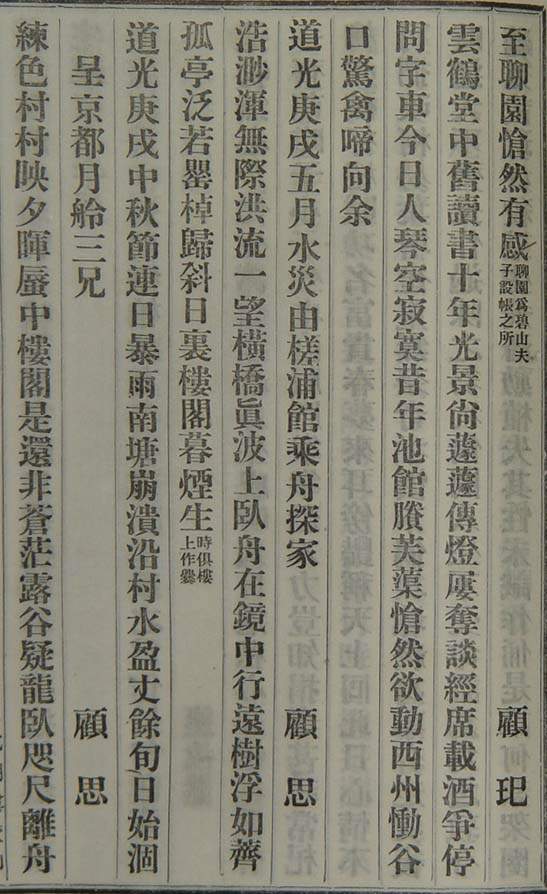 至聊園愴然有感 聊園爲碧山夫子設帳之所 顧玘
雲鶴堂中舊讀書十年光景尙蘧蘧傳燈屢奪談經席載酒爭停
問字車今日人琴空寂寞昔年池館賸芙蕖愴然欲動西州慟谷
口驚禽啼向余
道光庚戌五月水災由槎浦館乘舟探家 顧思
浩渺渾無際洪流一望橫橋眞波上臥舟在鏡中行遠樹浮如薺
孤亭泛若罌棹歸斜日裏樓閣暮煙生 時俱樓上作爨
道光庚戌中秋節連日暴雨南塘崩潰沿村水盈丈餘旬日始涸
呈京都月舲三兄 顧思
練色村村映夕暉蜃中樓閣是還非蒼茫露谷疑龍臥咫尺離舟